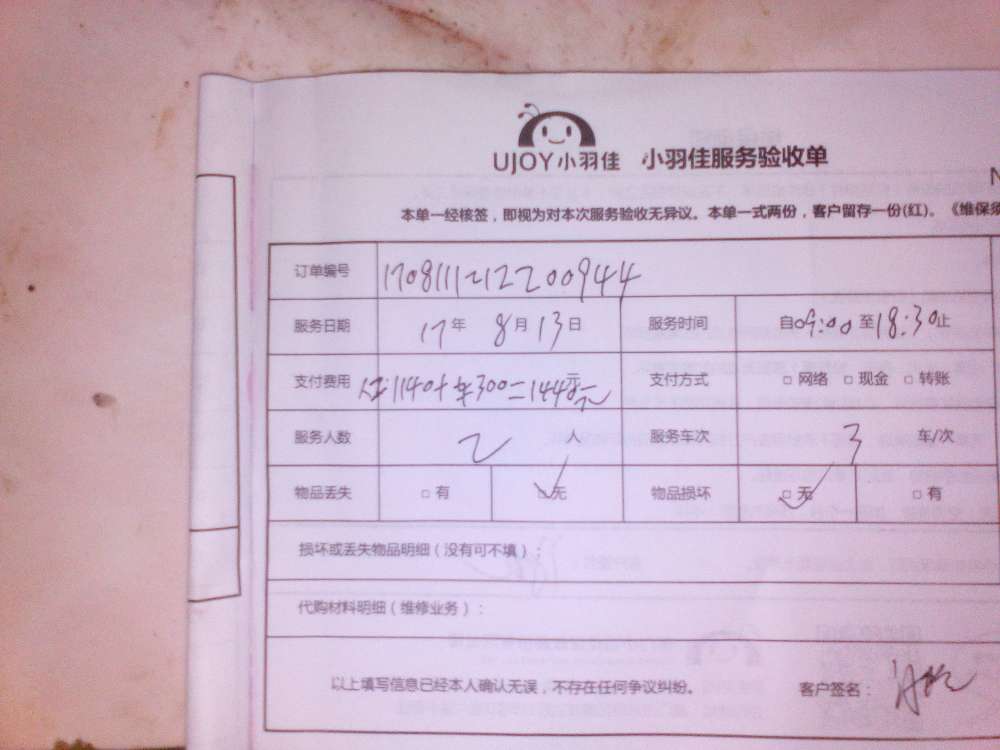 UJOY小羽佳 小羽佳服务验收单
N
本单一经核签，即视为对本次服务验收无异议。本单一式两份，客户留存一份(红)。《维保须
订单编号 170811121 2200944
服务日期 17年 8月13日 服务时间 自09:00至18:30止
支付费用 人:1140+车300=1440元 支付方式 □ 网络 □ 现金 □ 转账
服务人数 2 人 服务车次 3 车/次
物品丢失 □ 有 □ 无 物品损坏 □ 无 □ 有
损坏或丢失物品明细（没有可不填）：
代购材料明细（维修业务）：
以上填写信息已经本人确认无误，不存在任何争议纠纷。 客户签名：